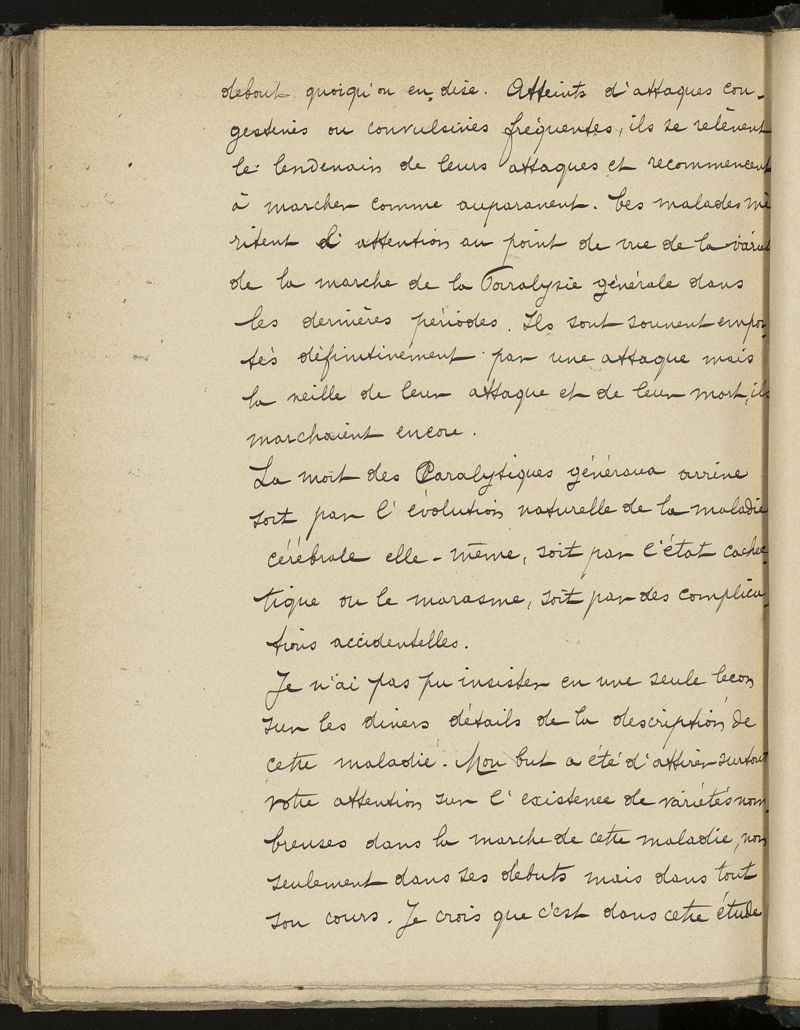 debout, quoiqu'on en dise. Atteints d'attaques con-
gestives ou convulsives fréquentes, ils se relèvent
le lendemain de leurs attaques et recommencent
à marcher comme auparavant. Ces malades mé
ritent l'attention au point de vue de la variét
de la marche de la Paralysie générale dans
les dernières périodes. Ils sont souvent empor
tés définitivement par une attaque mais
la veille de leur attaque et de leur mort, ils
marchaient encore.
La mort des Paralytiques généraux arrive
soit par l'évolution naturelle de la maladie
cérébrale elle-même, soit par l'état cachec-
tique ou le marasme, soit par des complica-
tions accidentelles.
Je n'ai pas pu insister en une seule leçon
sur les divers détails de la description de
cette maladie. Mon but a été d'attirer surtout
votre attention sur l'existence de variétés nom-
breuses dans la marche de cette maladie, non
seulement dans ses débuts mais dans tout
son cours. Je crois que c'est dans cette étude